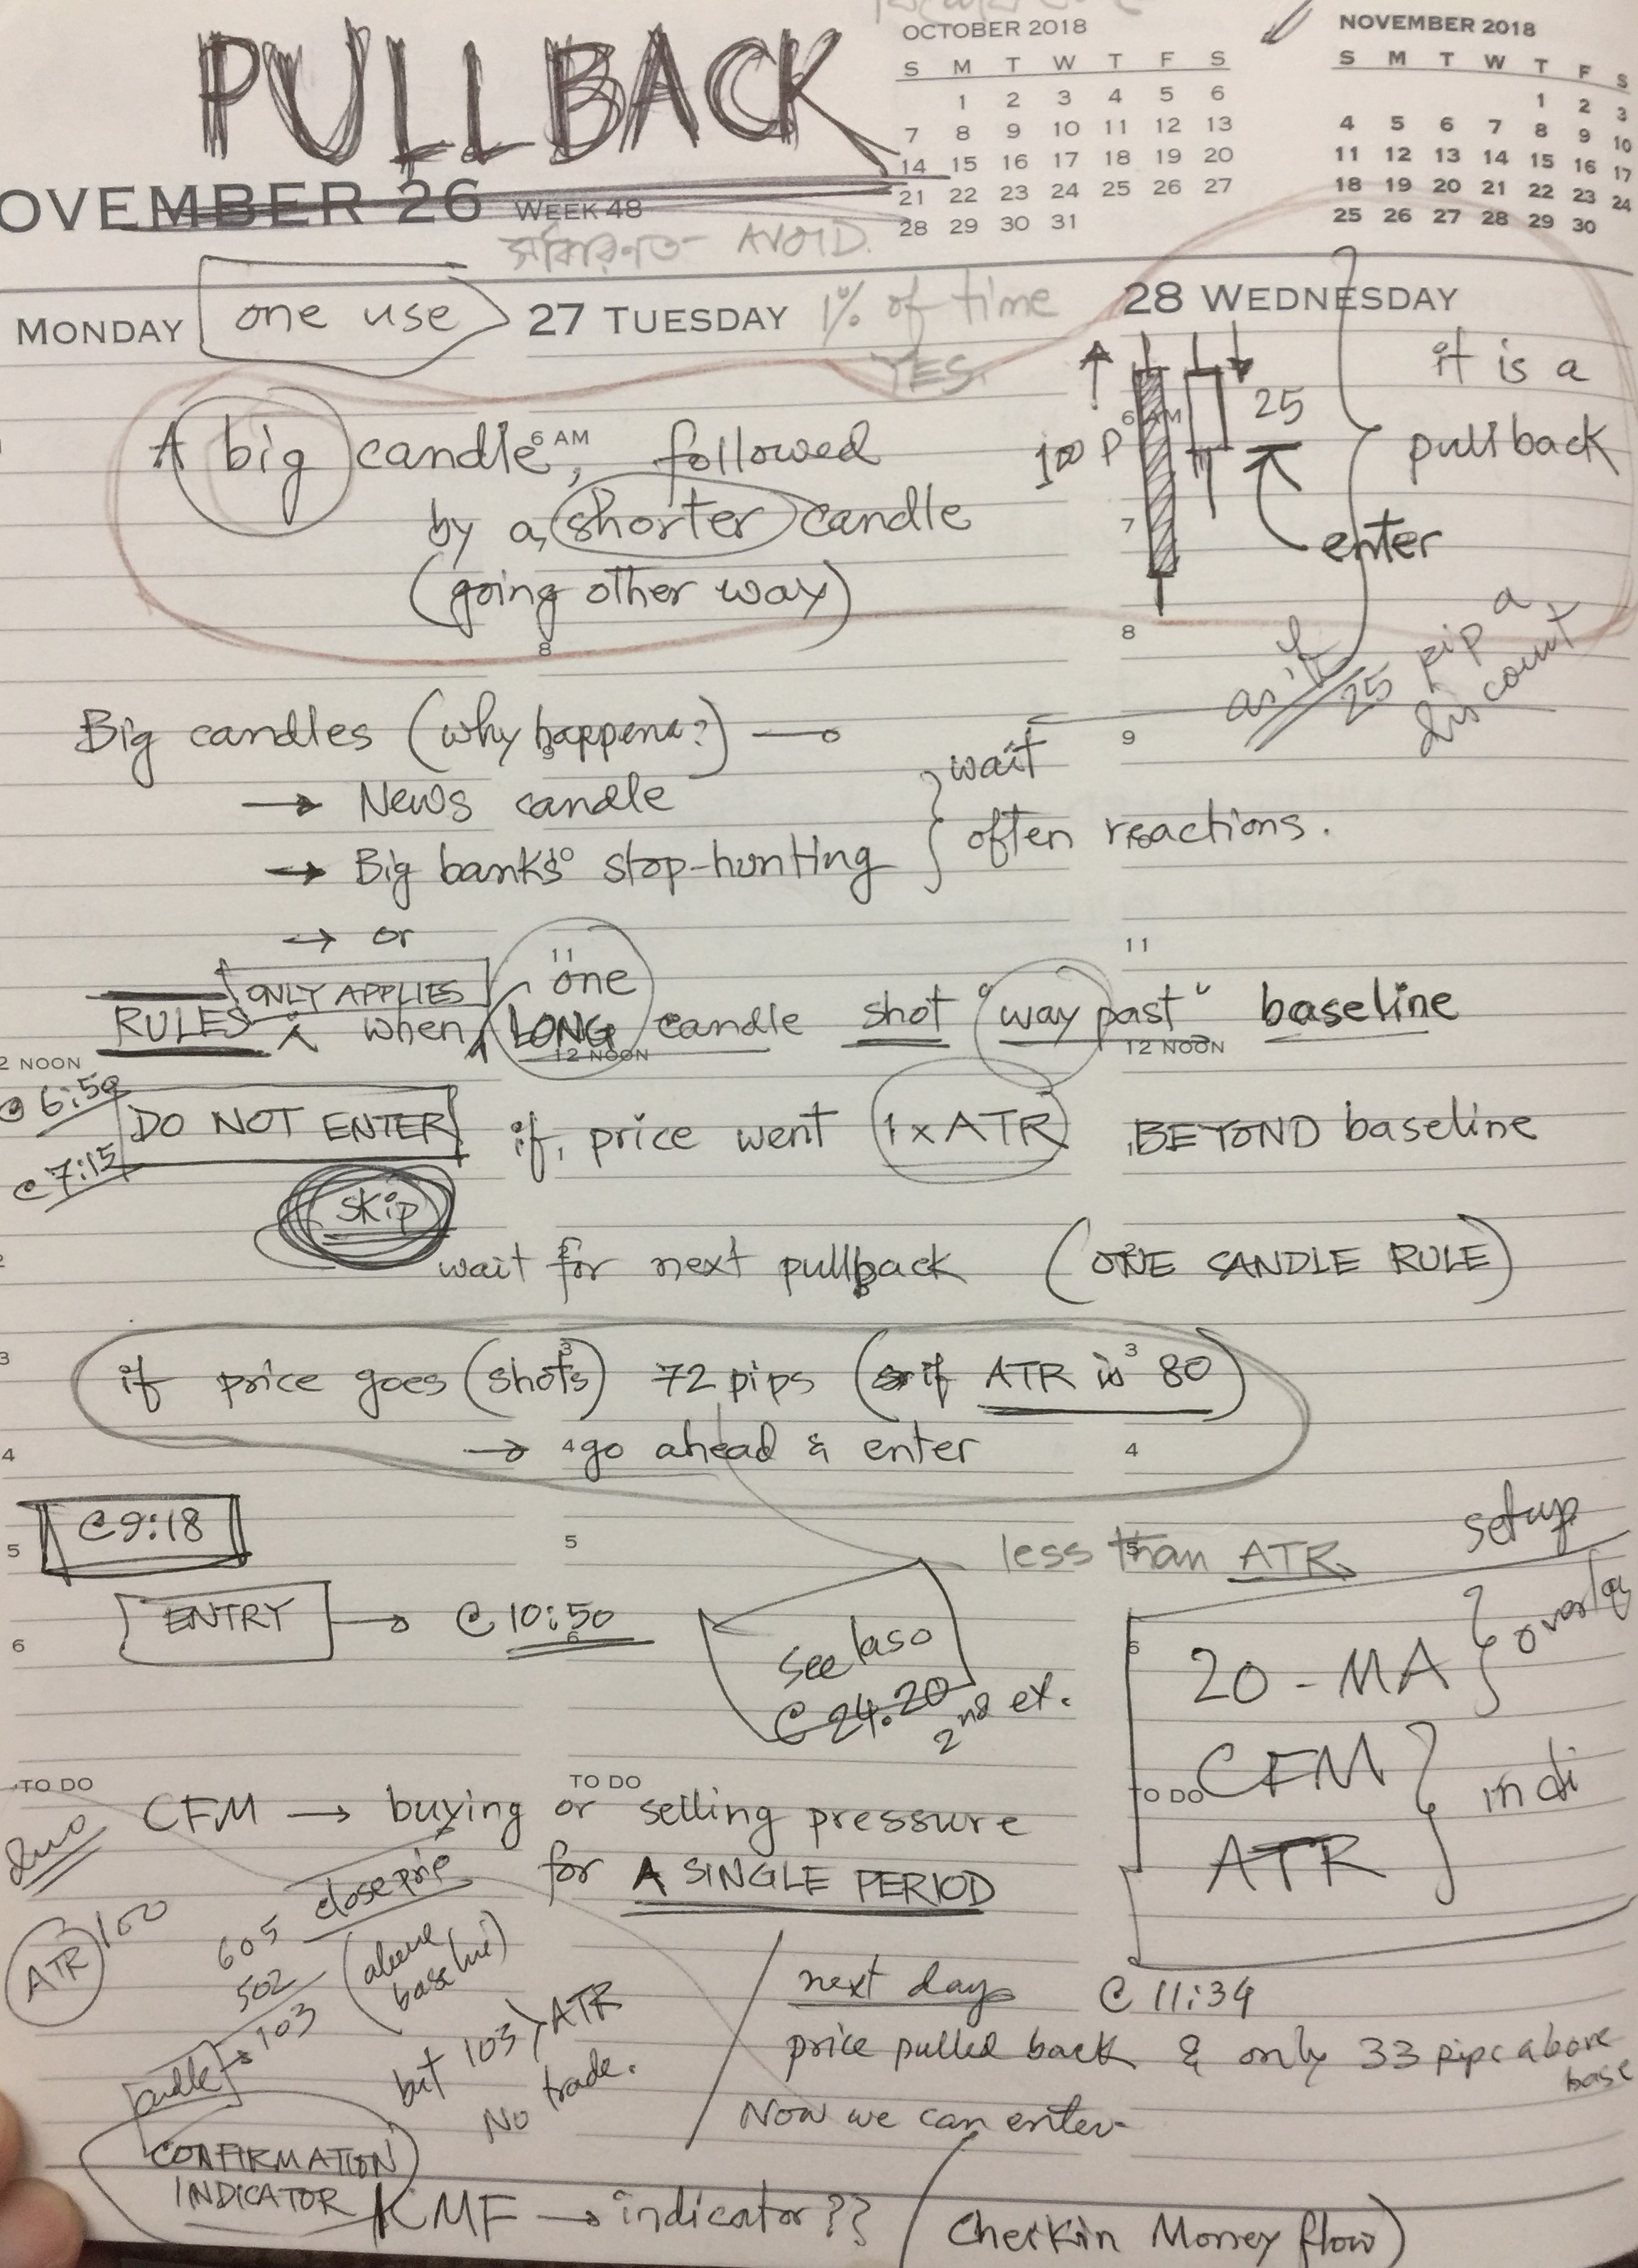 PULLBACK
OCTOBER 2018
S M T W T F S
1 2 3 4 5 6
7 8 9 10 11 12 13
14 15 16 17 18 19 20
21 22 23 24 25 26 27
28 29 30 31
NOVEMBER 2018
S M T W T F S
1 2 3
4 5 6 7 8 9 10
11 12 13 14 15 16 17
18 19 20 21 22 23 24
25 26 27 28 29 30
OVEMBER 26 WEEK 48
AVOID.
MONDAY
one use
27 TUESDAY
1% of time
YES.
28 WEDNESDAY
A big candle, followed
by a shorter candle
(going other way)
6 AM
6 AM
100 P
25
enter
it is a
pullback
7
8
8
as if
25 pip a
discount
Big candles (why happens?)
9
9
→ News candle
→ Big banks' stop-hunting
wait
often reactions.
→ or
11
11
RULES ONLY APPLIES when one LONG candle shot "way past" baseline
2 NOON
12 NOON
12 NOON
@ 6:50
@ 7:15
DO NOT ENTER if, price went 1 x ATR BEYOND baseline
skip
wait for next pullback (ONE CANDLE RULE)
if price goes (shots) 72 pips (if ATR is 80)
3
3
3
→ go ahead & enter
4
4
4
@ 9:18
5
5
5
less than ATR
setup
ENTRY → @ 10:50
6
6
6
See laso
@ 24.20
2nd ex.
20 - MA
overlay
CFM
ATR
indi
TO DO
TO DO
TO DO
CFM → buying or selling pressure
for A SINGLE PERIOD
duo
ATR 100
605 close prie
502 (above
baseline)
candle → 103
but 103 > ATR
NO trade.
next day @ 11:34
price pulled back & only 33 pips above
base
Now we can enter
CONFIRMATION
INDICATOR
KMF → indicator??
(Cheikin Money flow)